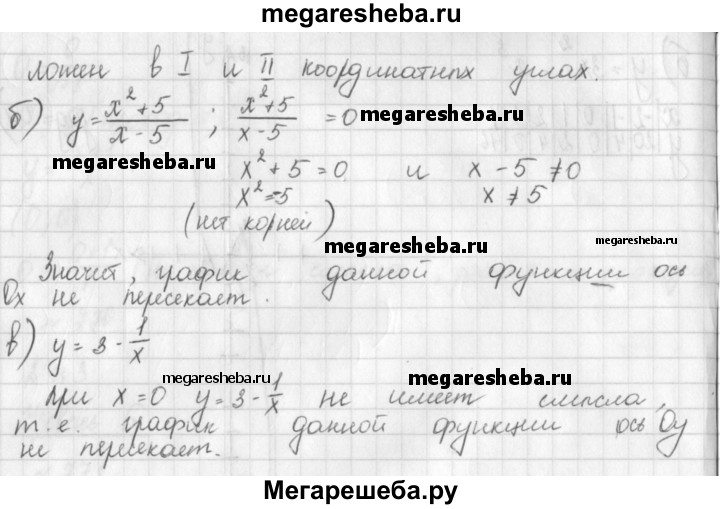 megaresheba.ru
ложен в I и II координатных углах.
б) y = x² + 5 / x - 5 ; x² + 5 / x - 5 = 0
megaresheba.ru
megaresheba.ru
x² + 5 = 0 и x - 5 ≠ 0
x² = -5 x ≠ 5
(нет корней)
megaresheba.ru
megaresheba.ru
Значит, график данной функции ось
Ox не пересекает.
в) y = 3 - 1/x
megaresheba.ru
megaresheba.ru
При x = 0 y = 3 - 1/x не имеет смысла,
т.е. график данной функции ось Oy
не пересекает.
Мегарешеба.ру